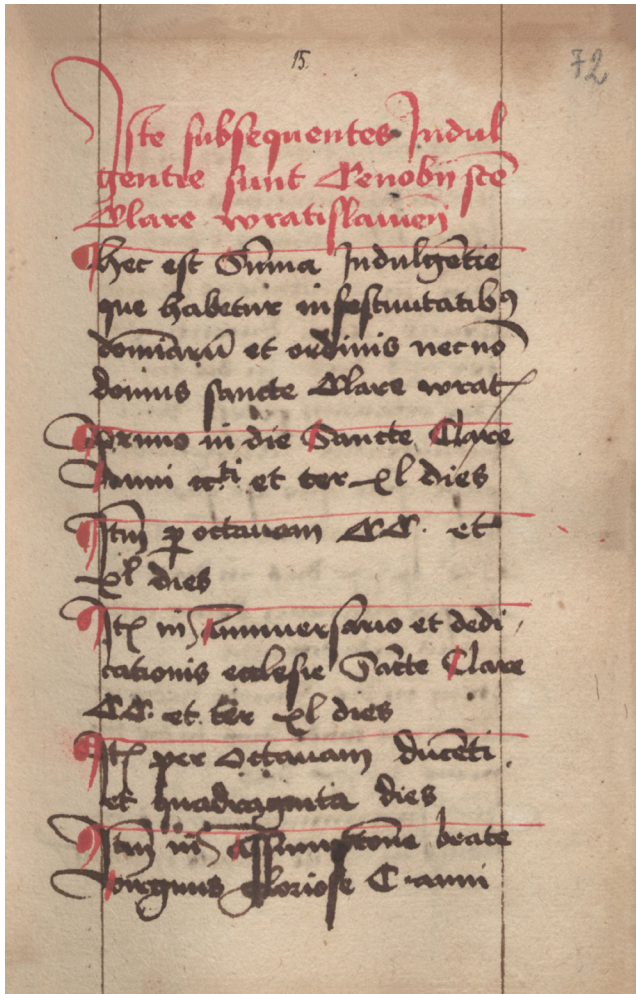 15
72
Iste subsequentes Indul
gentie sunt Cenobij scē
Clare wratislauień
hec est Sūma Indulgētie
que habetur in festiuitatibꝯ
domīcarū et ordinis necnō
domus sancte Clare wrat
primo in die Sancte Clare
anni et ter xl dies
Itm̄ ꝑ octauam CC. et
xl dies
Itē in Anniuersario et dedi
cationis ecclesie Sācte Clare
CC. et. ter xl dies
Itē per octauam ducēti
et quadraginta dies
Itm̄ in Assumptōne beate
virginis gloriose C. anni